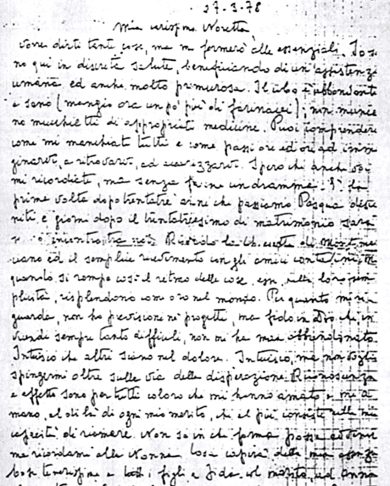 27-3-78
Mia carissima Noretta,
vorrei dirti tante cose, ma mi fermerò alle essenziali. Io so
no qui in discreta salute, beneficiando di un'assistenza
umana ed anche molto premurosa. Il cibo è abbondante
e sano (mangio ora un po' più di farinacei); non manca
no mucchietti di appropriate medicine. Puoi comprendere
come mi manchiate tutti e come passi ore ed ore ad immagi
narvi, a ritrovarvi, ad accarezzarvi. Spero che anche voi
mi ricordiate, ma senza farne un dramma. È la
prima volta dopo trentatre anni che passiamo Pasqua disu
niti e giorni dopo il trentatreesimo di matrimonio sarà
Ricordo la chiesetta di
ed il semplice ricevimento con gli amici
quando si rompe così il ritmo delle cose, esse, nella loro sem
plicità, risplendono come oro nel mondo. Per quanto mi ri
guarda, non ho previsioni né progetti, ma fido in Dio che, in
vicende sempre tanto difficili, non mi ha mai abbandonato.
Intuisco che altri siano nel dolore. Intuisco, ma non voglio
spingermi oltre sulla via della disperazione. Riconoscenza
e affetto sono per tutti coloro che mi hanno amato e mi a
mano, al di là di ogni mio merito, che al più consiste nella mia
capacità di riamare. Non so in che forma possa avvenire
ma ricordami alla Nonna. Cosa capirà della mia assenza
Cose tenerissime a tutti i figli e Fida col marito, ad Anna